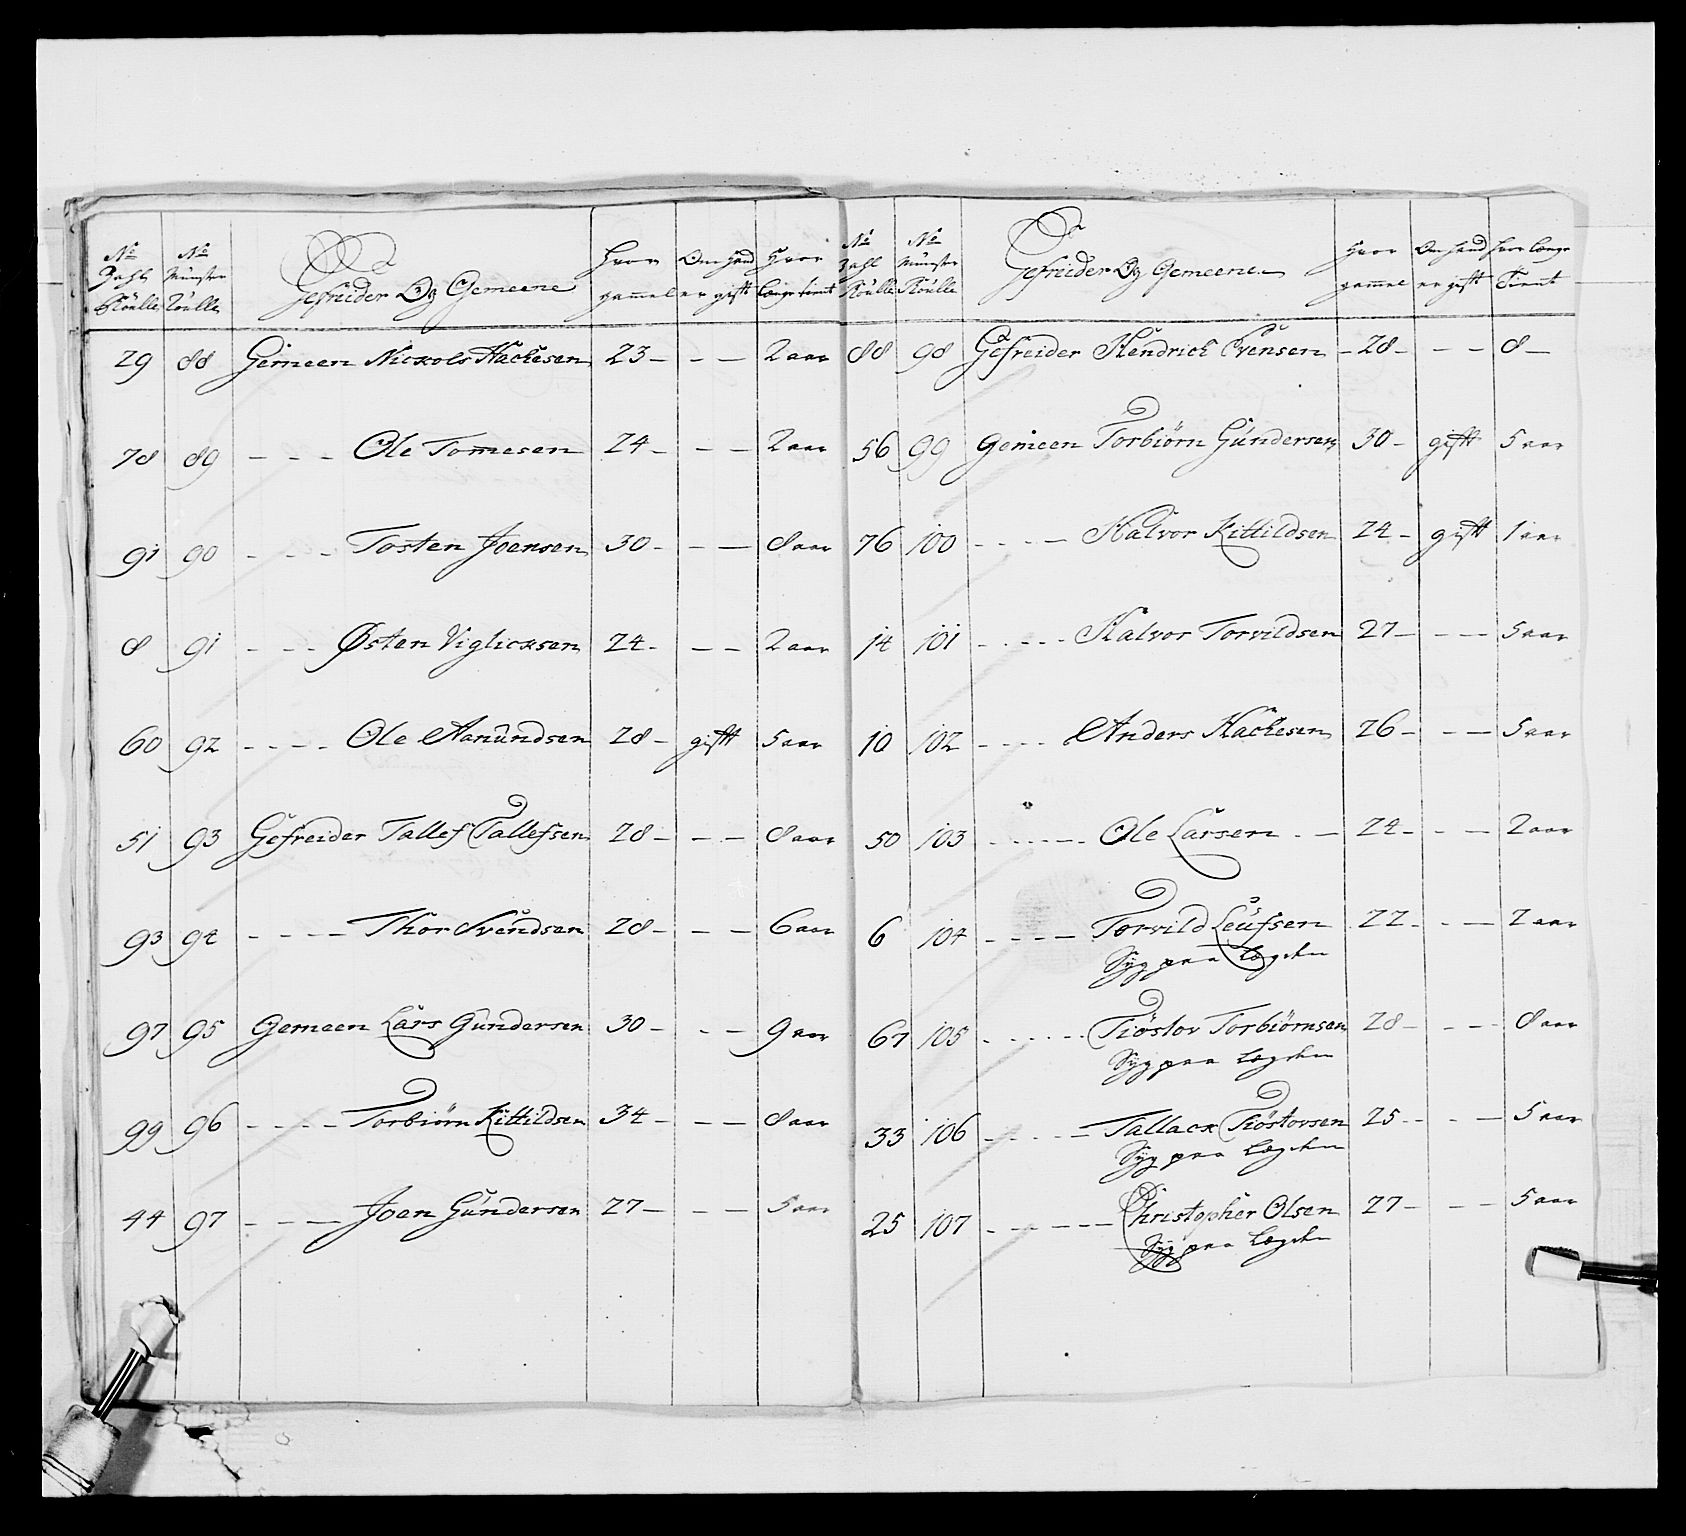 No Zahl Roulle | No Münster Roulle | Gefreider Og Gemeene | Hvor gammel | Om hand er gift | Hvor længe tient
29 | 88 | Gemeen Nickols Hackesen | 23 - | - - | 2 aar
78 | 89 | - - - Ole Tomesen | 24 - | - - | 2 aar
91 | 90 | - - - Tosten Joensen | 30 - | - - | 8 aar
8 | 91 | - - - Østen Viglicksen | 24 - | - - | 2 aar
60 | 92 | - - - - Ole Aanundsen | 28 - | gift | 5 aar
51 | 93 | Gefreider Tallef Tallefsen | 28 - | - - | 8 aar
93 | 94 | - - - - Thor Svendsen | 28 - | - - | 6 aar
97 | 95 | Gemeen Lars Gundersen | 30 - | - - | 9 aar
99 | 96 | - - - - Torbiørn Kittildsen | 34 - | - - | 8 aar
44 | 97 | - - - Joen Gundersen | 27 - | - - | 5 aar
No Zahl Roulle | No Münster Roulle | Gefreider Og Gemeene | Hvor gammel | Om hand er gift | hvor længe Tient
88 | 98 | Gefreider Hendrick Evensen | - 28 - | - - | 8 -
56 | 99 | Gemeen Torbiørn Gundersen | 30 - | gift | 5 aar
76 | 100 | - - - - Halvor Kittildsen | 24 - | gift | 1 aar
14 | 101 | - - - - Halvor Torvildsen | 27 - | - - - | 5 aar
10 | 102 | - - - - Anders Hackesen | 26 - | - - - | 5 aar
50 | 103 | - - - - - Ole Larsen - - | 24 - | - - | 2 aar
6 | 104 | - - - - Torvild Leufsen | 22 - | - - | 2 aar
Syg paa Lægden
67 | 105 | - - - - - Tiøstov Torbiørnsen | 28 - | - - - | 8 aar
Syg paa Lægden
33 | 106 | - - - - - Tallack Tiøstovsen | 25 - | - - - | 5 aar
Syg paa Lægden
25 | 107 | - - - - - - Christopher Olsen | 27 - | - - - | 5 aar
Syg paa Lægden